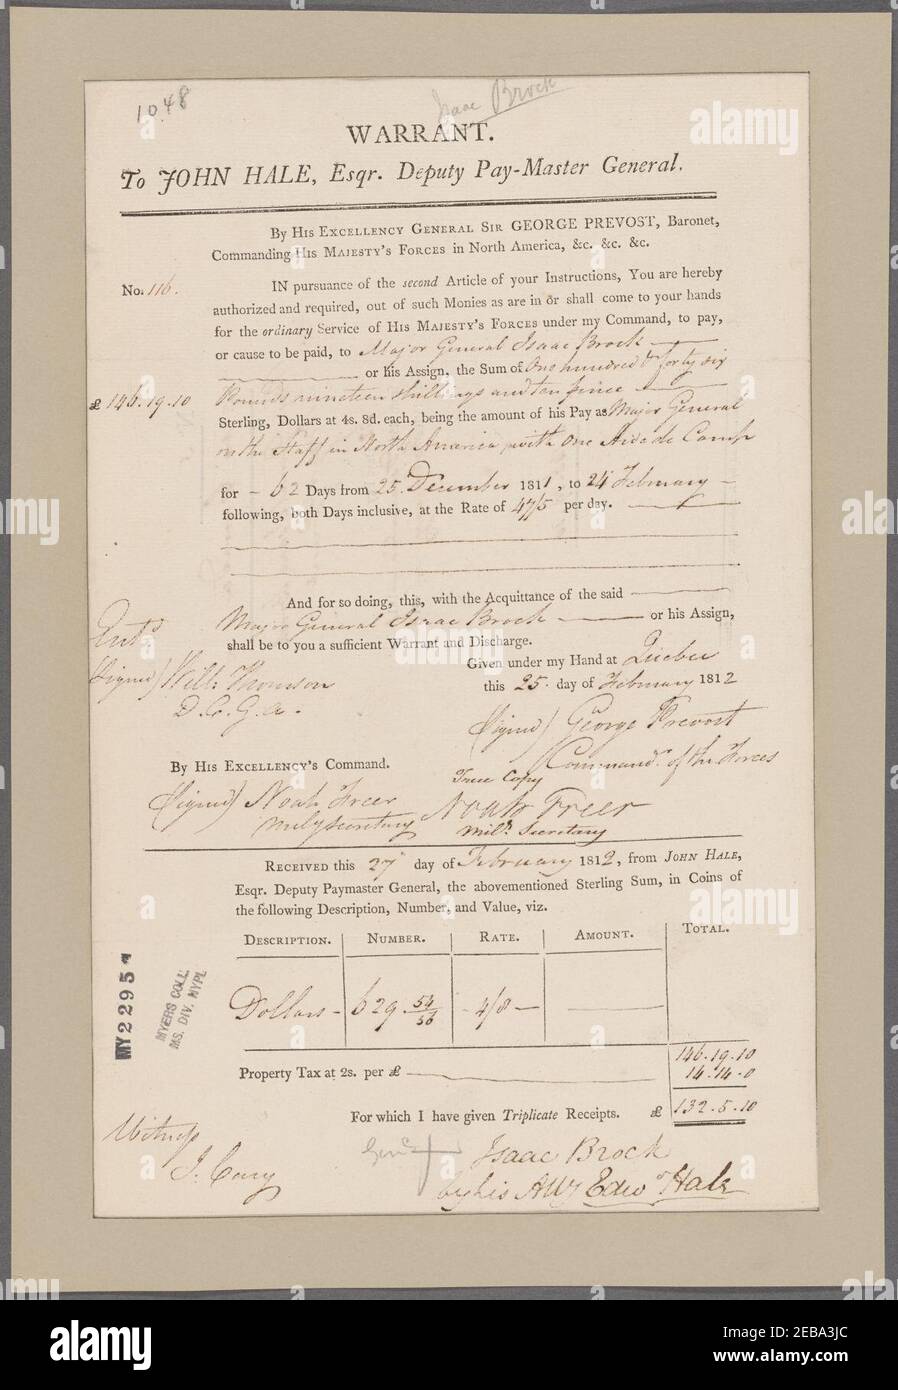 1048
Isaac Brock
WARRANT.
To JOHN HALE, Esqr. Deputy Pay-Master General.
By His Excellency General Sir GEORGE PREVOST, Baronet,
Commanding His Majesty's Forces in North America, &c. &c. &c.
No. 116.
IN pursuance of the second Article of your Instructions, You are hereby
authorized and required, out of such Monies as are in or shall come to your hands
for the ordinary Service of His Majesty's Forces under my Command, to pay,
or cause to be paid, to Major General Isaac Brock
or his Assign, the Sum of One hundred & forty six
£ 146.19.10 Pounds nineteen shillings and ten pence
Sterling, Dollars at 4s. 8d. each, being the amount of his Pay as Major General
on the Staff in North America, with One Aide de Camp
for - 62 Days from 25. December 1811, to 24 February -
following, both Days inclusive, at the Rate of 47/5 per day.
And for so doing, this, with the Acquittance of the said
Major General Isaac Brock or his Assign,
shall be to you a sufficient Warrant and Discharge.
Entd
Given under my Hand at Quebec
(Signed) Willm Thomson this 25. day of February 1812
D. C. G. A.
(Signed) George Prevost
By His Excellency's Command. Commandr of the Forces
True Copy
(Signed) Noah Freer Noah Freer
Mily Secretary Mily Secretary
Received this 27 day of February 1812, from John Hale,
Esqr. Deputy Paymaster General, the abovementioned Sterling Sum, in Coins of
the following Description, Number, and Value, viz.
Description. Number. Rate. Amount. Total.
Dollars - 629 54/56 - 4/8 -
146.19.10
Property Tax at 2s. per £ 14.14.0
For which I have given Triplicate Receipts. £ 132.5.10
Witness
Isaac Brock
J. Cary
by his Atty Edwd Hale
MY2295
MYERS COLL.
MS. DIV. NYPL
alamy
alamy
2EBA3JC